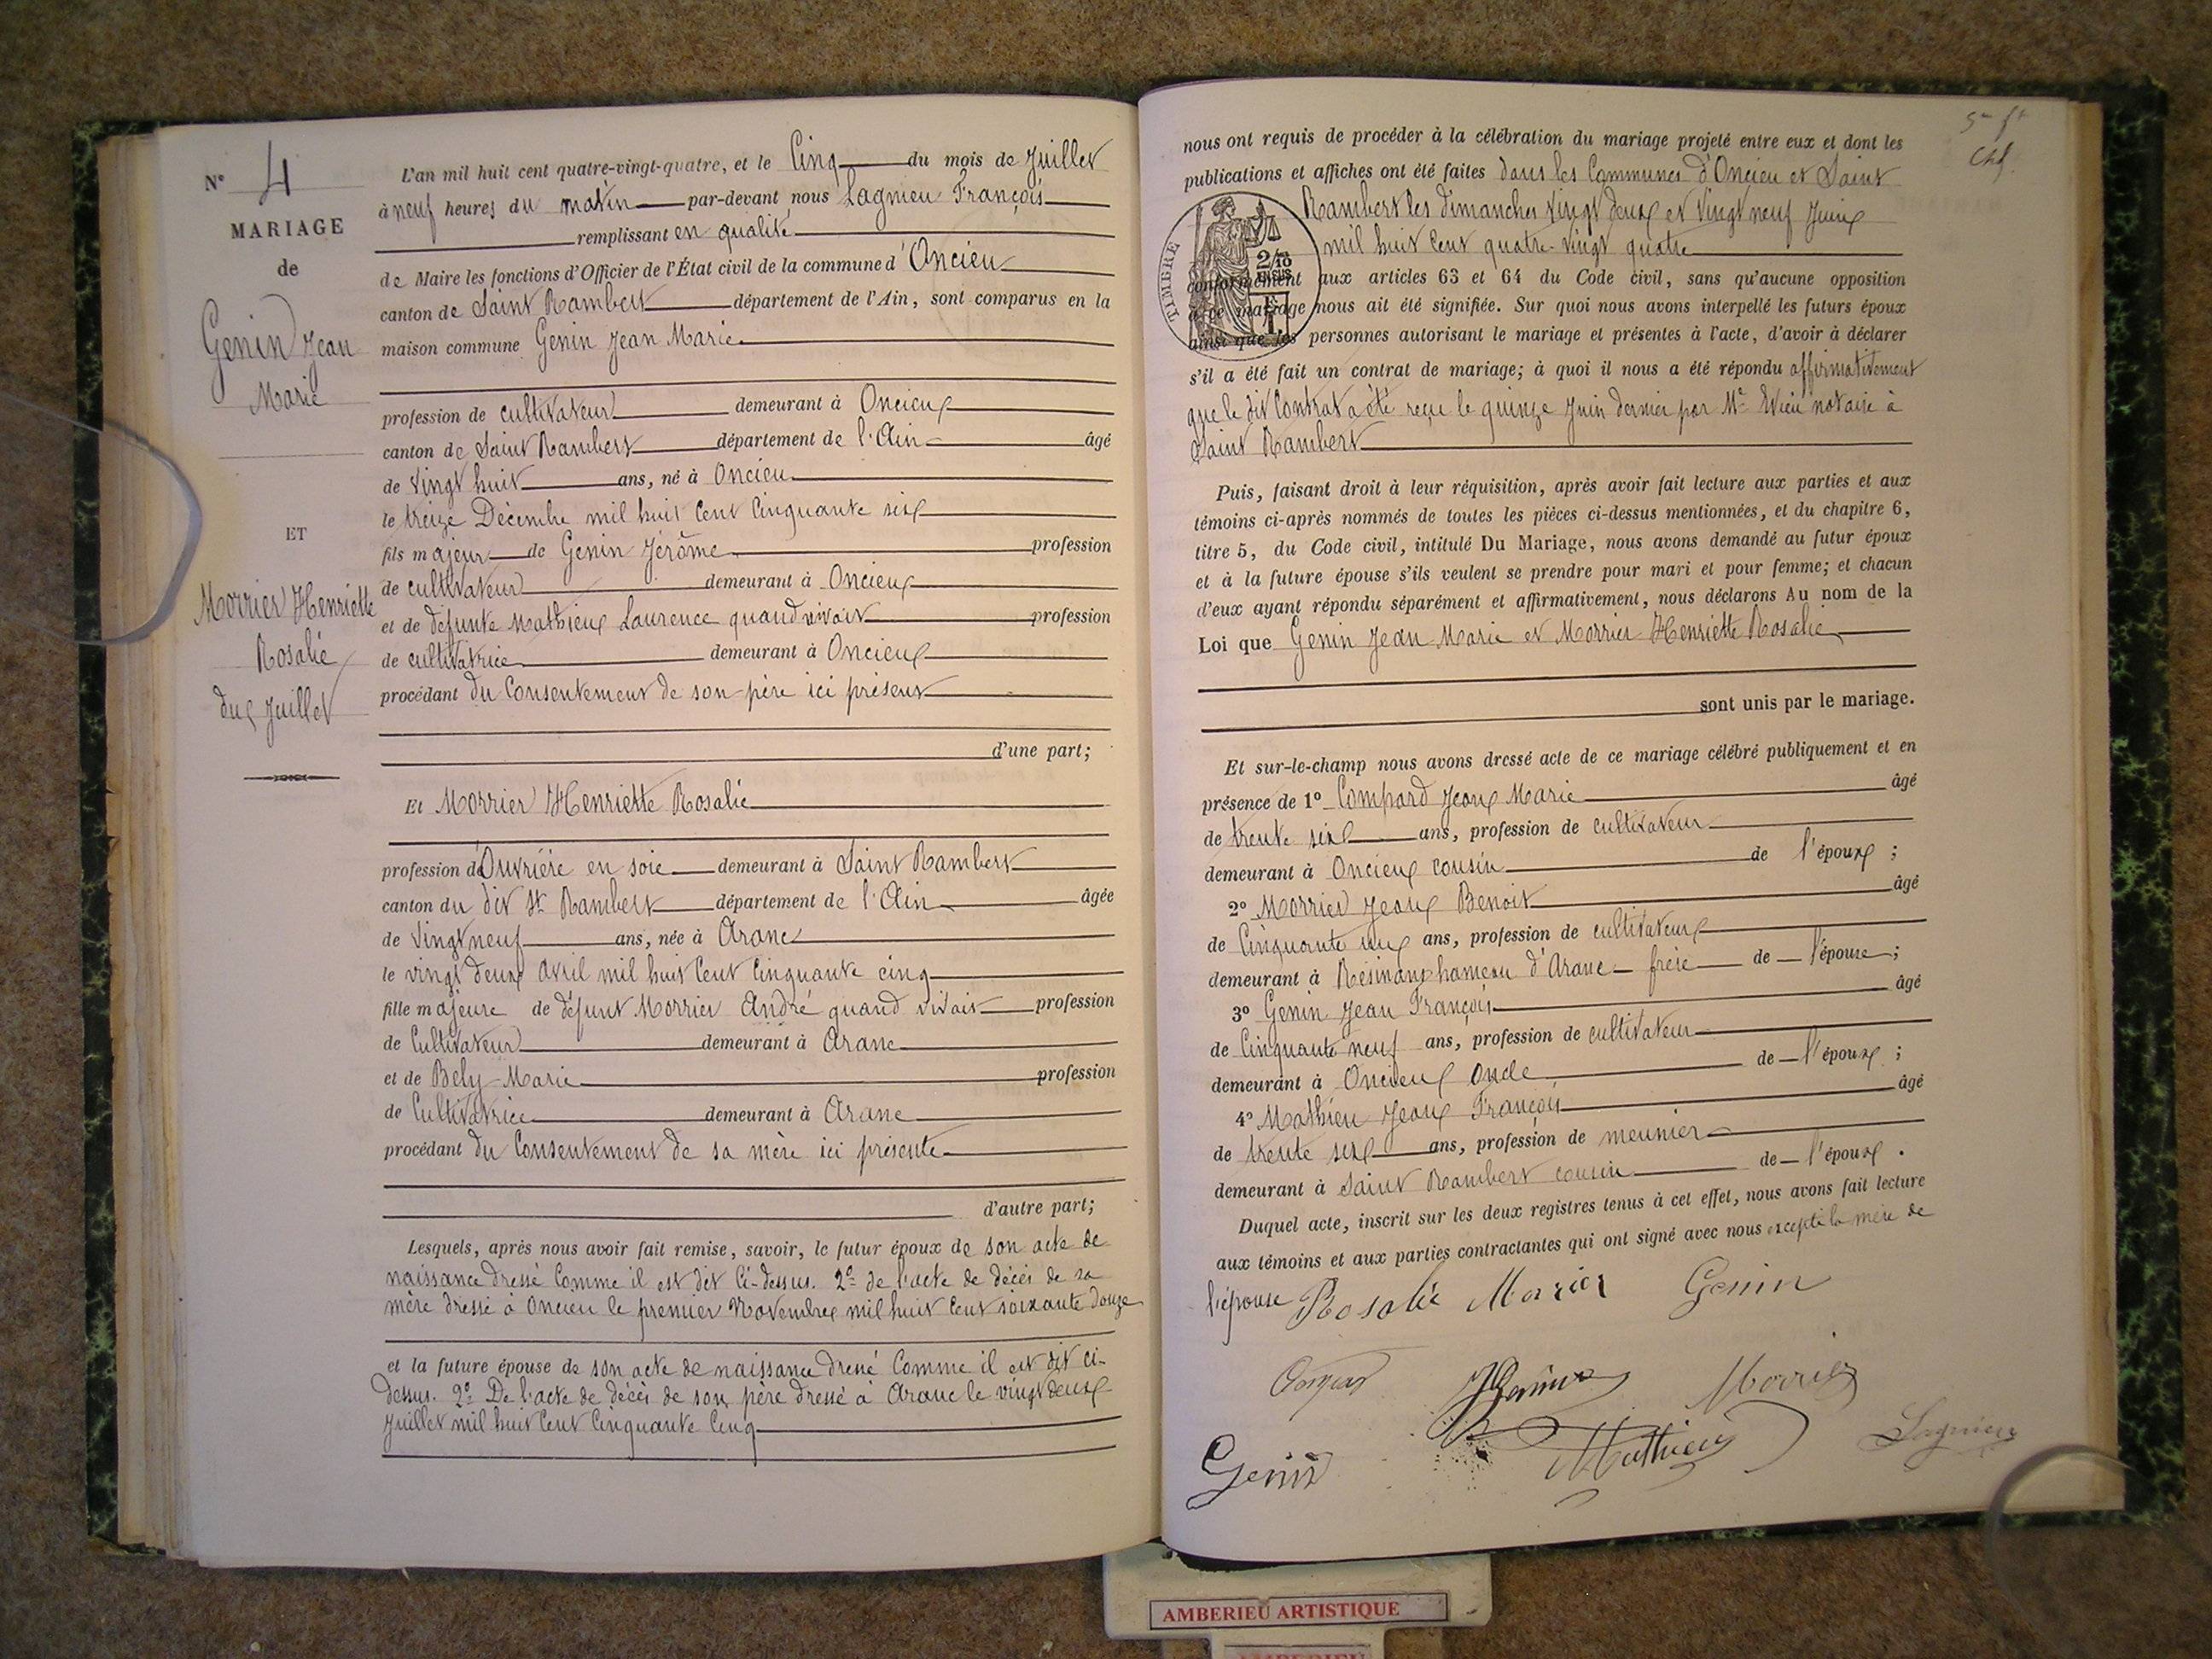 N° 4
MARIAGE
de
Genin Jean
Marie
ET
Morrier Henriette
Rosalie
du 5 Juillet
L'an mil huit cent quatre-vingt-quatre, et le Cinq du mois de Juillet
à neuf heures du matin par-devant nous Lagnieu François
remplissant en qualité
de Maire les fonctions d'Officier de l'État civil de la commune d'Oncieu
canton de Saint Rambert département de l'Ain, sont comparus en la
maison commune Genin Jean Marie
profession de cultivateur demeurant à Oncieux
canton de Saint Rambert département de l'Ain âgé
de vingt huit ans, né à Oncieu
le treize Décembre mil huit Cent Cinquante six
fils majeur de Genin Jérôme profession
de cultivateur demeurant à Oncieux
et de défunte Mathieux Laurence quand vivait profession
de cultivatrice demeurant à Oncieux
procédant du Consentement de son père ici présent
d'une part;
Et Morrier Henriette Rosalie
profession d'Ouvrière en soie demeurant à Saint Rambert
canton du dit St Rambert département de l'Ain âgée
de vingt neuf ans, née à Aranc
le vingt deux avril mil huit Cent Cinquante cinq
fille majeure de défunt Morrier André quand vivait profession
de Cultivateur demeurant à Aranc
et de Bely Marie profession
de Cultivatrice demeurant à Aranc
procédant du Consentement de sa mère ici présente
d'autre part;
Lesquels, après nous avoir fait remise, savoir, le futur époux de son acte de
naissance dressé Comme il est dit Ci-dessus. 2° de l'acte de décès de sa
mère dressé à Oncieu le premier Novembre mil huit Cent soixante douze
et la future épouse de son acte de naissance dressé Comme il est dit ci-
dessus. 2° De l'acte de décès de son père dressé à Aranc le vingt deux
Juillet mil huit Cent Cinquante Cinq
nous ont requis de procéder à la célébration du mariage projeté entre eux et dont les
publications et affiches ont été faites dans les Communes d'Oncieu et Saint
Rambert les dimanches vingt deux et vingt neuf Juin
mil huit Cent quatre-vingt quatre
TIMBRE
2/10
EN SUS
conformément aux articles 63 et 64 du Code civil, sans qu'aucune opposition
à ce mariage nous ait été signifiée. Sur quoi nous avons interpellé les futurs époux
ainsi que les personnes autorisant le mariage et présentes à l'acte, d'avoir à déclarer
s'il a été fait un contrat de mariage; à quoi il nous a été répondu affirmativement
que le dit Contrat a été reçu le quinze Juin dernier par Me notaire à
Saint Rambert
Puis, faisant droit à leur réquisition, après avoir fait lecture aux parties et aux
témoins ci-après nommés de toutes les pièces ci-dessus mentionnées, et du chapitre 6,
titre 5, du Code civil, intitulé Du Mariage, nous avons demandé au futur époux
et à la future épouse s'ils veulent se prendre pour mari et pour femme; et chacun
d'eux ayant répondu séparément et affirmativement, nous déclarons Au nom de la
Loi que Genin Jean Marie et Morrier Henriette Rosalie
sont unis par le mariage.
Et sur-le-champ nous avons dressé acte de ce mariage célébré publiquement et en
présence de 1° Compard Jean Marie âgé
de trente six ans, profession de cultivateur
demeurant à Oncieux cousin de l'époux;
2° Morrier Jean Benoit âgé
de Cinquante un ans, profession de cultivateur
demeurant à Résinand hameau d'Aranc frère de l'épouse;
3° Genin Jean François âgé
de Cinquante neuf ans, profession de cultivateur
demeurant à Oncieux Oncle de l'époux;
4° Mathieu Jean François âgé
de trente six ans, profession de meunier
demeurant à Saint Rambert cousin de l'époux.
Duquel acte, inscrit sur les deux registres tenus à cet effet, nous avons fait lecture
aux témoins et aux parties contractantes qui ont signé avec nous excepté la mère de
l'épouse Rosalie Morier Genin
Morrier
Genin Mathieu Lagnieu
AMBERIEU ARTISTIQUE
AMBERIEU